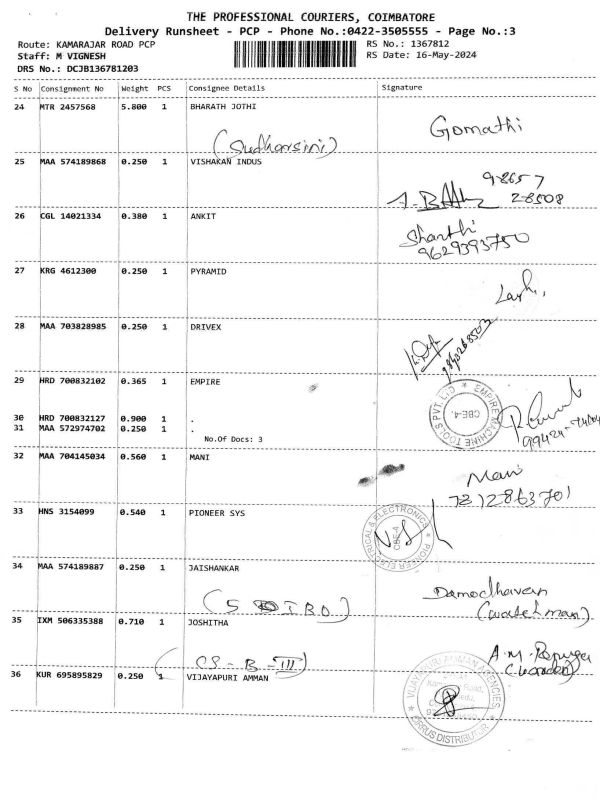 THE PROFESSIONAL COURIERS, COIMBATORE
Delivery Runsheet - PCP - Phone No.:0422-3505555 - Page No.:3
Route: KAMARAJAR ROAD PCP
RS No.: 1367812
Staff: M VIGNESH
RS Date: 16-May-2024
DRS No.: DCJB136781203
S No Consignment No Weight PCS Consignee Details Signature
24 MTR 2457568 5.800 1 BHARATH JOTHI
Gomathi
(Sudharsini)
25 MAA 574189868 0.250 1 VISHAKAN INDUS
98657
28508
26 CGL 14021334 0.380 1 ANKIT
Shanthi
9629393750
27 KRG 4612300 0.250 1 PYRAMID
28 MAA 703828985 0.250 1 DRIVEX
29 HRD 700832102 0.365 1 EMPIRE
EMPIRE MACHINE TOOLS PVT. LTD
CBE-4.
30 HRD 700832127 0.900 1 .
31 MAA 572974702 0.250 1 .
No.Of Docs: 3
32 MAA 704145034 0.560 1 MANI
Mani
7212863701
33 HNS 3154099 0.540 1 PIONEER SYS
PIONEER ELECTRICAL & ELECTRONICS
CBE-4
34 MAA 574189887 0.250 1 JAISHANKAR
(watchman)
35 IXM 506335388 0.710 1 JOSHITHA
(CS - B - III)
36 KUR 695895829 0.250 1 VIJAYAPURI AMMAN
VIJAYAPURI AMMAN AGENCIES
DISTRIBUTOR